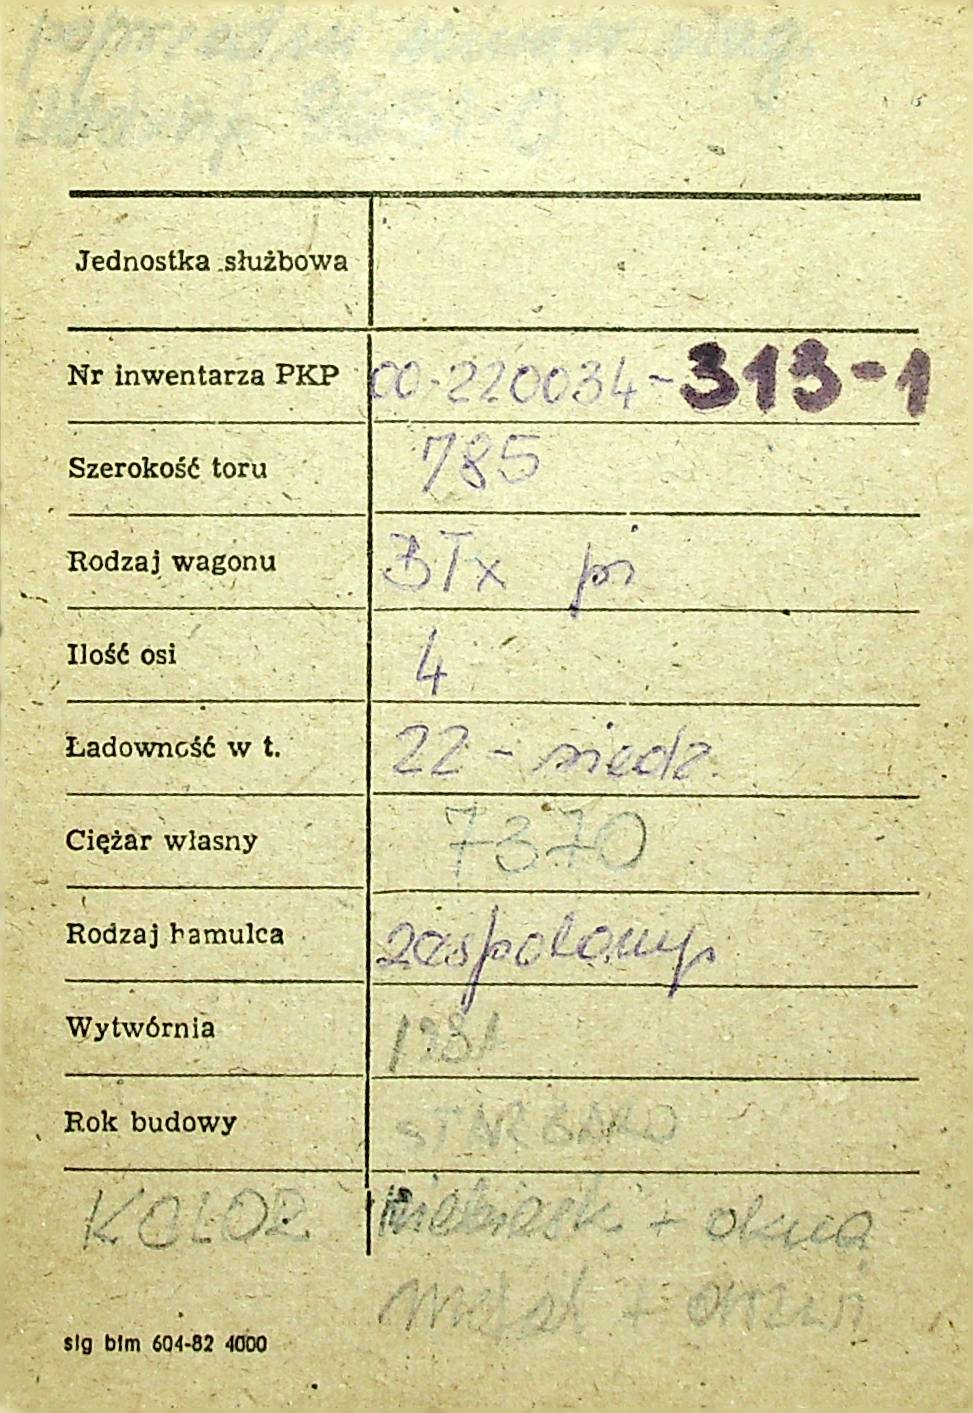 poprzedni numer wag.
Jednostka służbowa
Nr inwentarza PKP 00-220034-313-1
Szerokość toru 785
Rodzaj wagonu BTx pi
Ilość osi 4
Ładowność w t. 22 - siedz.
Ciężar własny 7370
Rodzaj hamulca zespolony
Wytwórnia 1981
Rok budowy STARGARD
KOLOR niebiesk + okna
+ drzwi
slg blm 604-82 4000